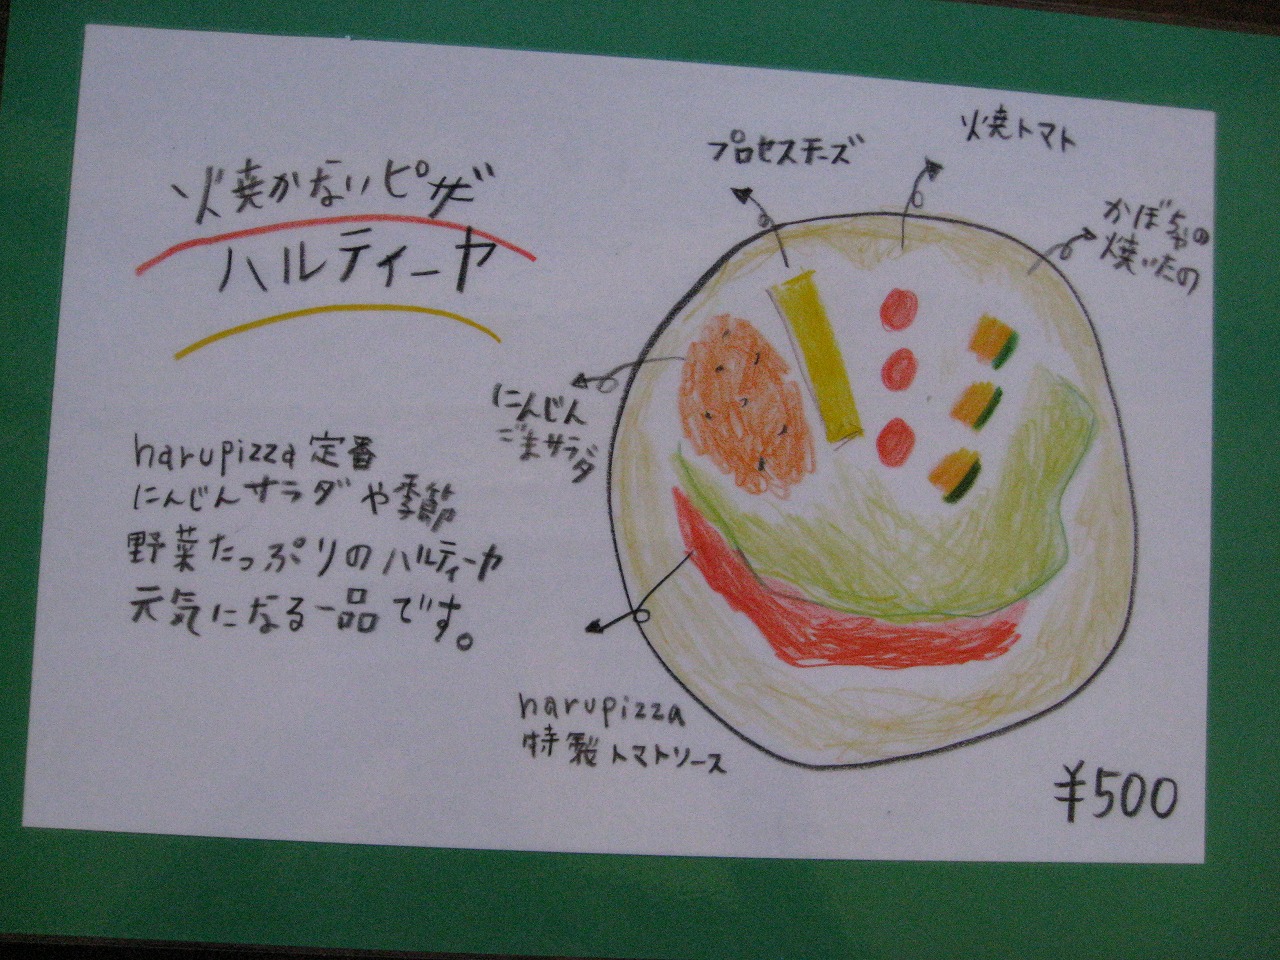 焼かないピザ
ハルティーヤ
harupizza 定番
にんじんサラダや季節
野菜たっぷりのハルティーヤ
元気になる一品です。
プロセスチーズ
焼トマト
かぼちゃの
焼いたの
にんじん
ごまサラダ
harupizza
特製トマトソース
¥500